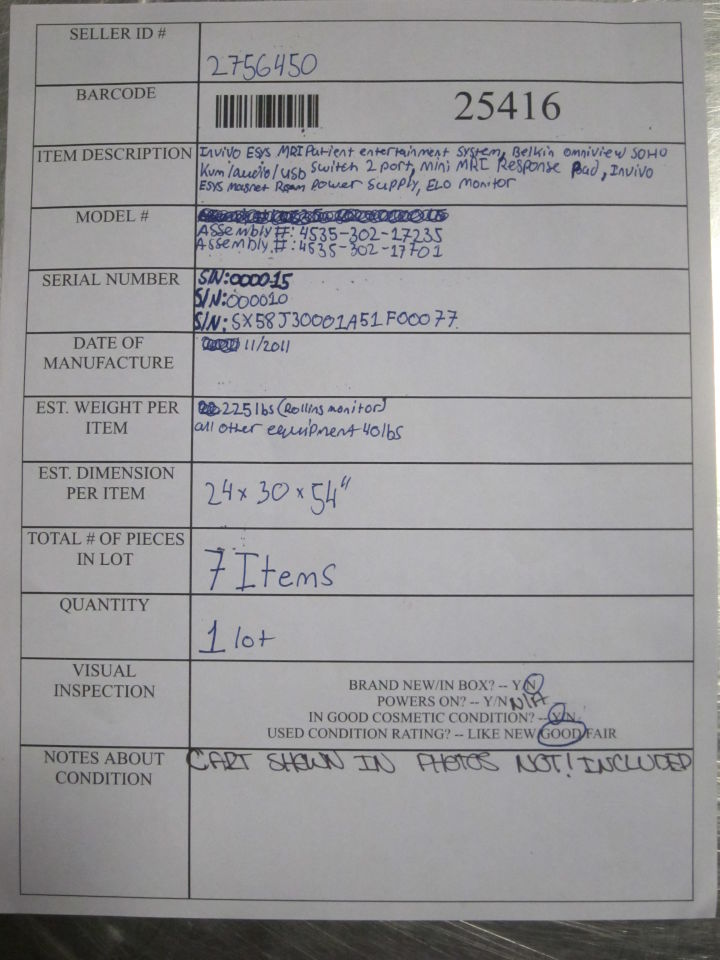 SELLER ID #
2756450
BARCODE
25416
ITEM DESCRIPTION
Invivo ESYS MRI Patient entertainment System, Belkin omniview SOHO
Kvm/audio/usb Switch 2 port, Mini MRI Response Pad, Invivo
ESYS Magnet Room Power Supply, ELO monitor
MODEL #
Assembly #: 4535-302-17235
Assembly #: 4535-302-17701
SERIAL NUMBER
S/N:000015
S/N:000010
S/N: SX58J30001A51F00077
DATE OF
MANUFACTURE
11/2011
EST. WEIGHT PER
ITEM
225 lbs (Rollins monitor)
all other equipment 40 lbs
EST. DIMENSION
PER ITEM
24 x 30 x 54"
TOTAL # OF PIECES
IN LOT
7 Items
QUANTITY
1 lot
VISUAL
INSPECTION
BRAND NEW/IN BOX? -- Y/N
POWERS ON? -- Y/N N/A
IN GOOD COSMETIC CONDITION? -- Y/N
USED CONDITION RATING? -- LIKE NEW/GOOD/FAIR
NOTES ABOUT
CONDITION
CART SHOWN IN PHOTOS NOT! INCLUDED